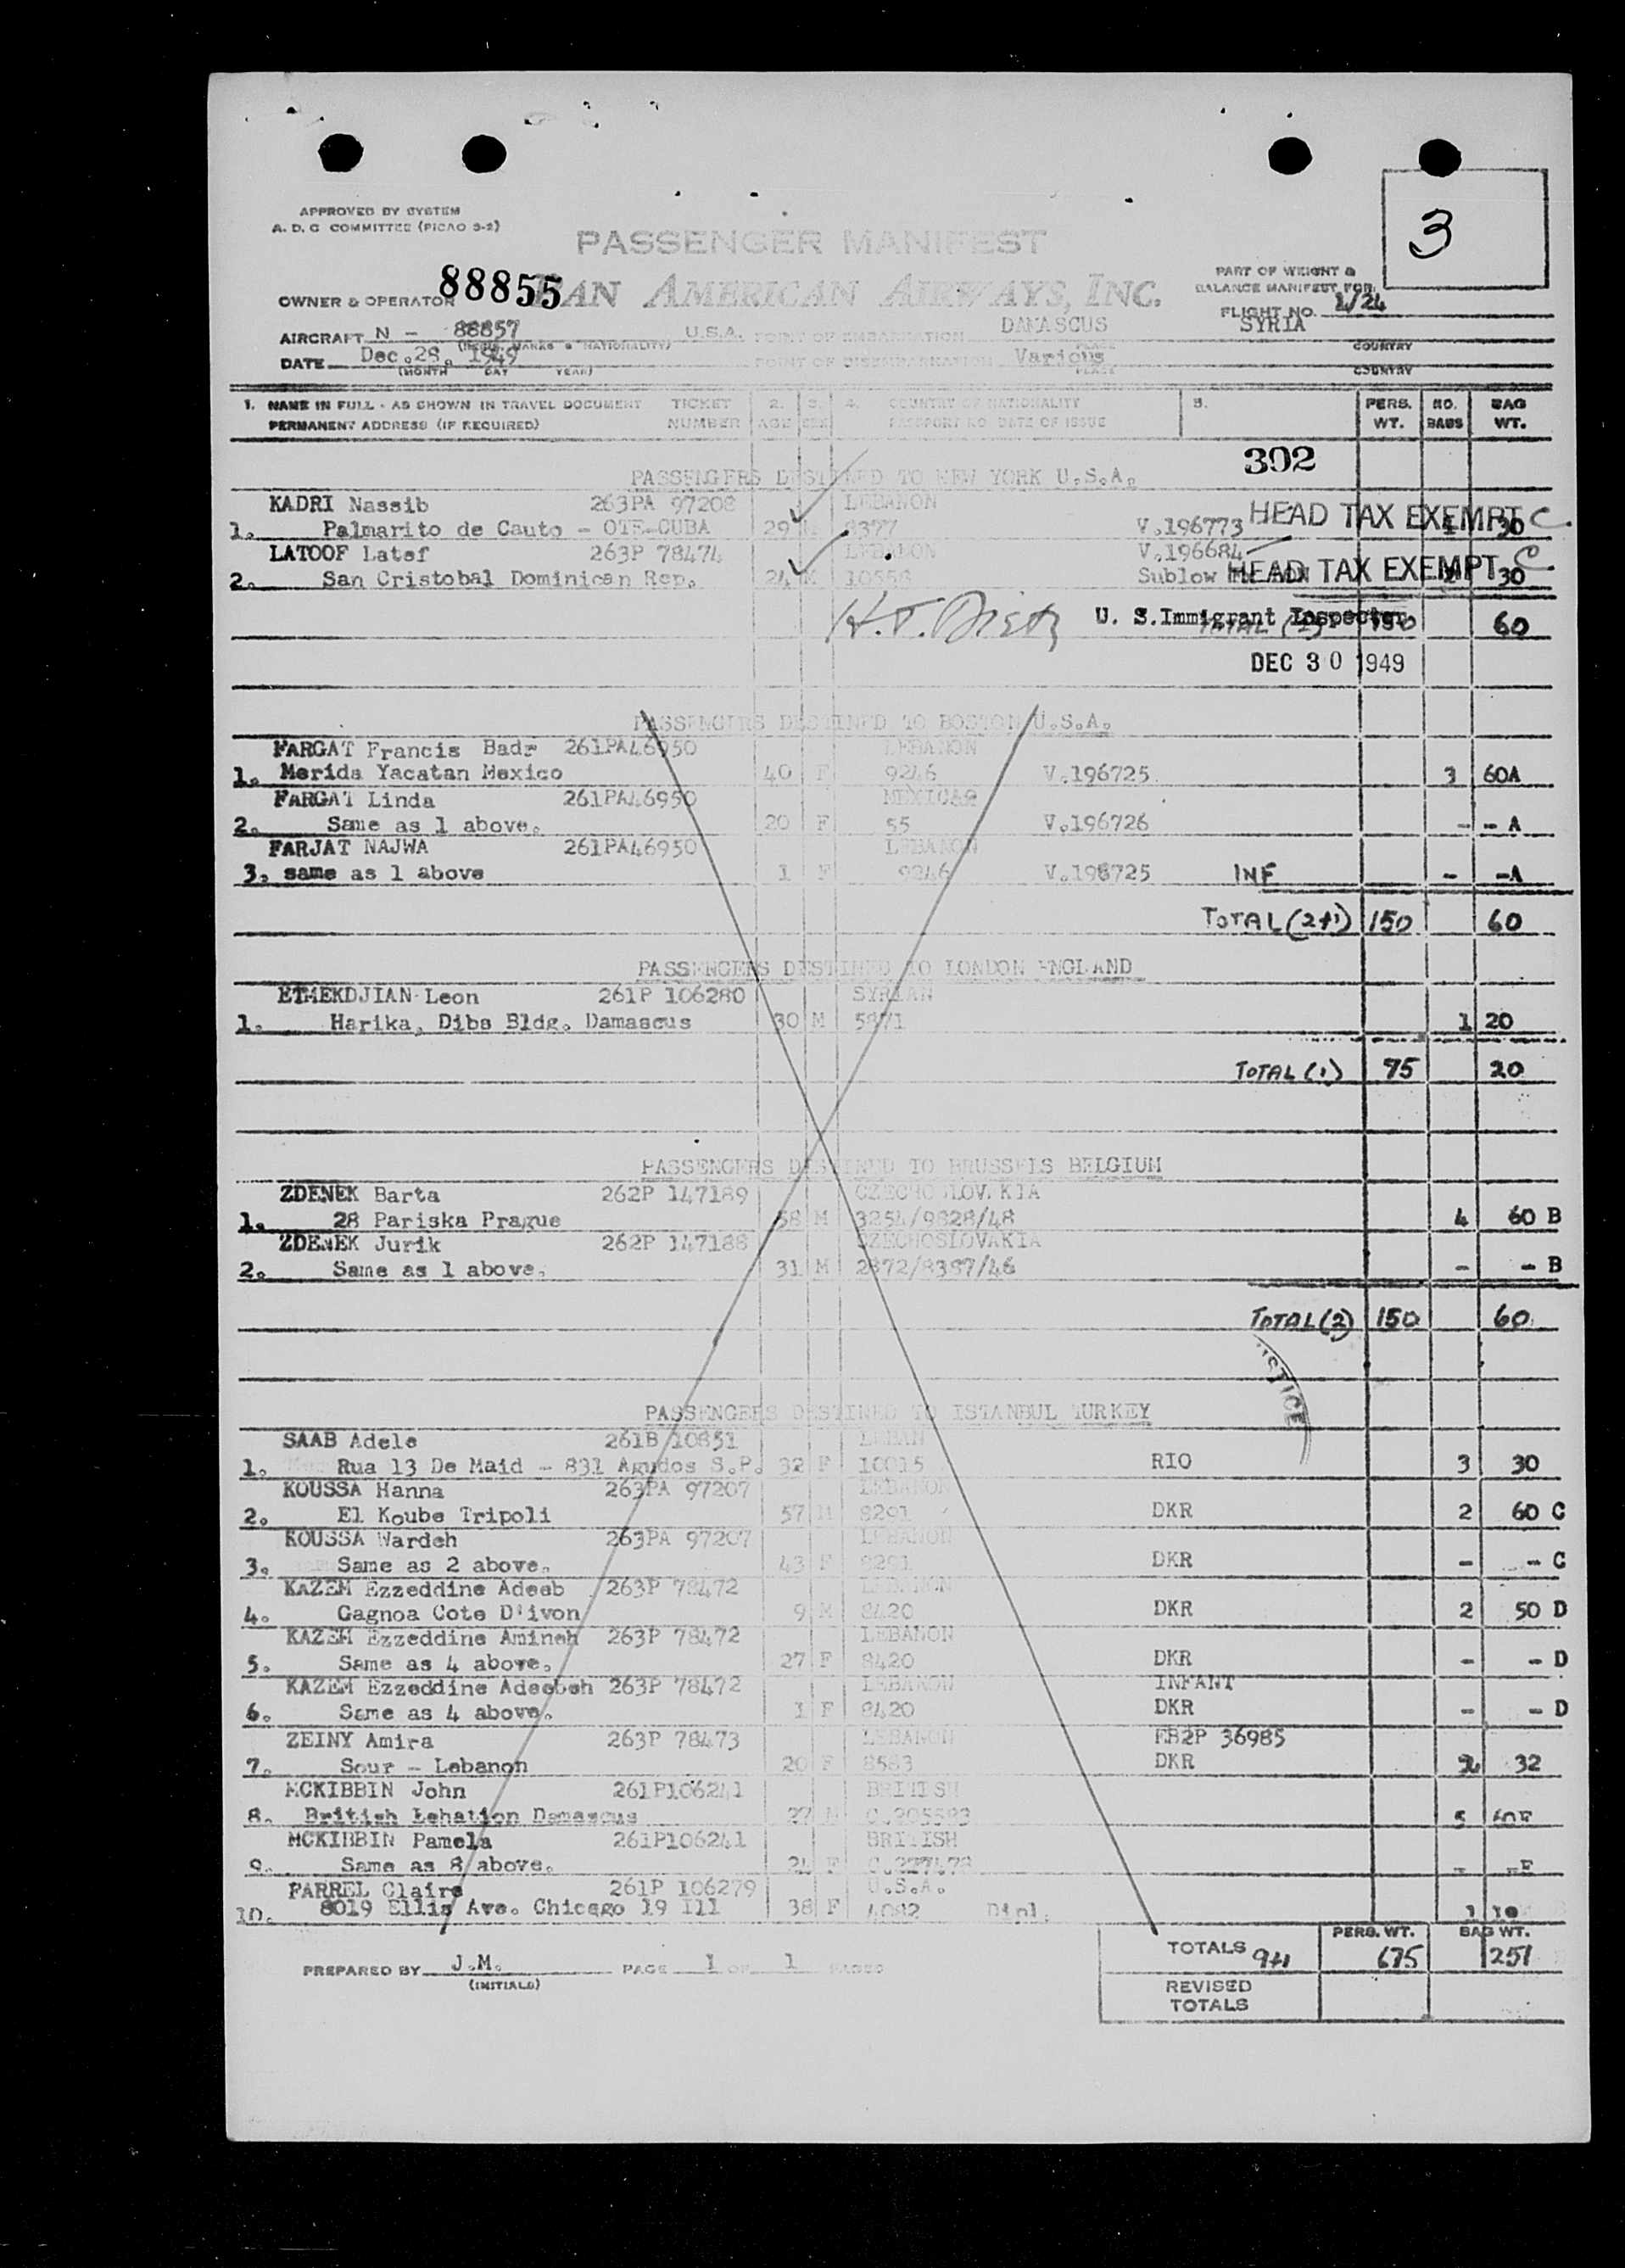 3
APPROVED BY SYSTEM
A. D. C COMMITTEE (PICAO 3-2)
PASSENGER MANIFEST
PART OF WEIGHT &
BALANCE MANIFEST FOR
OWNER & OPERATOR 88855 PAN AMERICAN AIRWAYS, INC.
FLIGHT NO. 1/24
AIRCRAFT N - 88857 U.S.A. POINT OF EMBARKATION DAMASCUS SYRIA
(REGIS. MARKS & NATIONALITY) PLACE COUNTRY
DATE Dec.28, 1949 POINT OF DISEMBARKATION Various
(MONTH DAY YEAR) PLACE COUNTRY
1. NAME IN FULL - AS SHOWN IN TRAVEL DOCUMENT TICKET 2. 3. 4. COUNTRY OF NATIONALITY 5. PERS. NO. BAG
PERMANENT ADDRESS (IF REQUIRED) NUMBER AGE SEX PASSPORT NO DATE OF ISSUE WT. BAGS WT.
302
PASSENGERS DESTINED TO NEW YORK U.S.A.
KADRI Nassib 263PA 97208 LEBANON
1. Palmarito de Cauto - OTE-CUBA 29 8377 V.196773 HEAD TAX EXEMPT C. 1 30
LATOOF Latef 263P 78474 LEBANON V.196684
2. San Cristobal Dominican Rep. 24 M 10558 Sublow HEAD TAX EXEMPT C. 30
U. S. Immigrant Inspector TOTAL 150 60
DEC 30 1949
PASSENGERS DESTINED TO BOSTON U.S.A.
FARGAT Francis Badr 261PA46950 LEBANON
1. Merida Yacatan Mexico 40 F 9246 V.196725 3 60A
FARGAT Linda 261PA46950 MEXICAN
2. Same as 1 above. 20 F 55 V.196726 - - A
FARJAT NAJWA 261PA46950 LEBANON
3. same as 1 above 1 F 9246 V.196725 INF - -A
TOTAL (2+1) 150 60
PASSENGERS DESTINED TO LONDON ENGLAND
ETMEKDJIAN Leon 261P 106280 SYRIAN
1. Harika, Dibs Bldg. Damascus 30 M 5871 1 20
TOTAL (1) 75 20
PASSENGERS DESTINED TO BRUSSELS BELGIUM
ZDENEK Barta 262P 147189 CZECHOSLOVAKIA
1. 28 Pariska Prague 58 M 3254/9828/48 4 60 B
ZDENEK Jurik 262P 147188 CZECHOSLOVAKIA
2. Same as 1 above. 31 M 2872/8387/46 - - B
TOTAL (2) 150 60
STICE
PASSENGERS DESTINED TO ISTANBUL TURKEY
SAAB Adele 261B 10851 LEBAN
1. Rua 13 De Maid - 831 Agudos S.P. 32 F 10015 RIO 3 30
KOUSSA Hanna 263PA 97207 LEBANON
2. El Koube Tripoli 57 M 8291 DKR 2 60 C
KOUSSA Wardeh 263PA 97207 LEBANON
3. Same as 2 above. 43 F 8291 DKR - - C
KAZEM Ezzeddine Adeeb 263P 78472 LEBANON
4. Gagnoa Cote D'ivon 9 M 8420 DKR 2 50 D
KAZEM Ezzeddine Amineh 263P 78472 LEBANON
5. Same as 4 above. 27 F 8420 DKR - - D
KAZEM Ezzeddine Adeebeh 263P 78472 LEBANON INFANT
6. Same as 4 above. 1 F 8420 DKR - - D
ZEINY Amira 263P 78473 LEBANON EB2P 36985
7. Sour - Lebanon 20 F 8563 DKR 2 32
MCKIBBIN John 261P106241 BRITISH
8. British Lehation Damascus 27 M C.205593 5 60E
MCKIBBIN Pamela 261P106241 BRITISH
9. Same as 8 above. 24 F - -E
FARREL Claire 261P 106279 U.S.A.
10. 8019 Ellis Ave. Chicago 19 Ill 38 F 4082 Dipl. 1 19
PREPARED BY J.M. PAGE 1 OF 1 PAGES
(INITIALS)
TOTALS 9+1 PERS. WT. 675 BAG WT. 251
REVISED
TOTALS